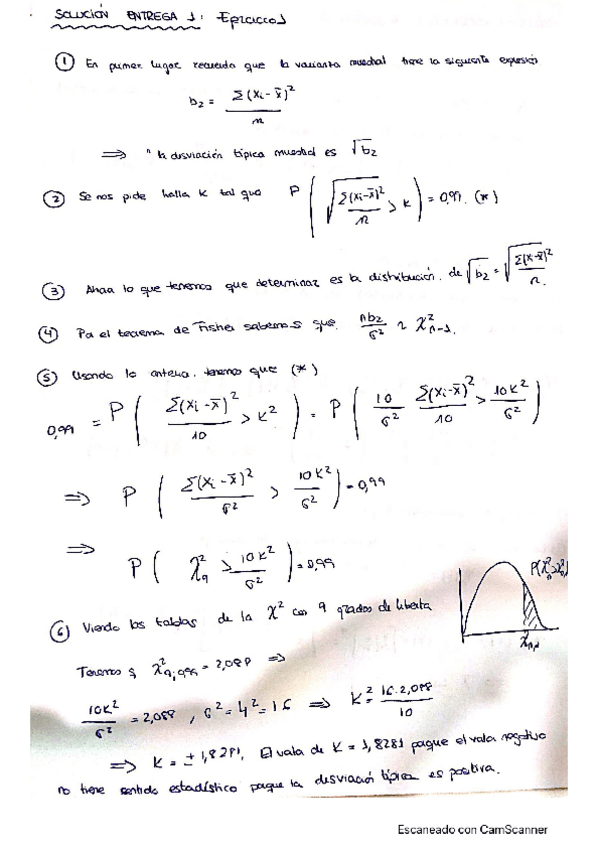 SOLUCIÓN ENTREGA 1: Ejercicio 1
① En primer lugar recuerdo que la varianza muestral tiene la siguiente expresión
b₂ = Σ(xᵢ - x̄)² / n
⟹ " la desviación típica muestral es √b₂
② Se nos pide hallar K tal que P( √(Σ(xᵢ-x̄)² / n) > K ) = 0,99. (*)
③ Ahora lo que tenemos que determinar es la distribución. de √b₂ = √(Σ(xᵢ-x̄)² / n).
④ Por el teorema de Fisher sabemos que. nb₂/σ² ~ χ²ₙ₋₁.
⑤ Usando lo anterior. tenemos que (*)
0,99 = P( Σ(xᵢ-x̄)² / 10 > K² ) = P( 10/σ² Σ(xᵢ-x̄)²/10 > 10K²/σ² )
⟹ P( Σ(xᵢ-x̄)²/σ² > 10K²/σ² ) = 0,99
⟹ P( χ²₉ > 10K²/σ² ) = 0,99
⑥ Viendo las tablas de la χ² con 9 grados de libertad
Tenemos χ²₉,₀,₉₉ = 2,088 ⟹
10K²/σ² = 2,088 , σ² = 4² = 16 ⟹ K² = 16·2,088 / 10
⟹ K = ± 1,8281. El valor de K = 1,8281 porque el valor negativo
no tiene sentido estadístico porque la desviación típica es positiva.
Escaneado con CamScanner